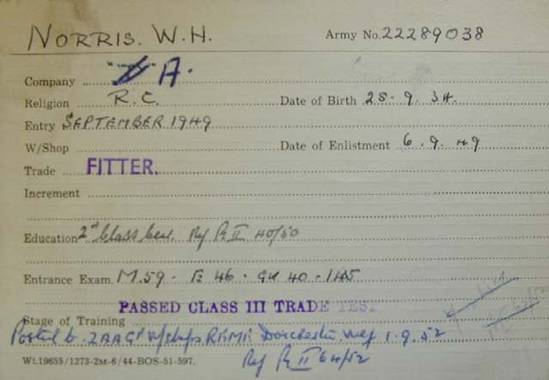 NORRIS. W.H. Army No. 22289038
Company A.
Religion R.C. Date of Birth 28.9.34.
Entry SEPTEMBER 1949
W/Shop Date of Enlistment 6.9.49
Trade FITTER.
Increment
Education 2nd Class Cert. Ref Pt II 40/50
Entrance Exam. M.59. E 46. GK 40. 145
PASSED CLASS III TRADE TEST
Stage of Training
Posted to 2AAGp W/shops REME Dorchester wef 1.9.52
Wt.19655/1273-2M-6/44-BOS-51-597. Ref Pt II 64/52